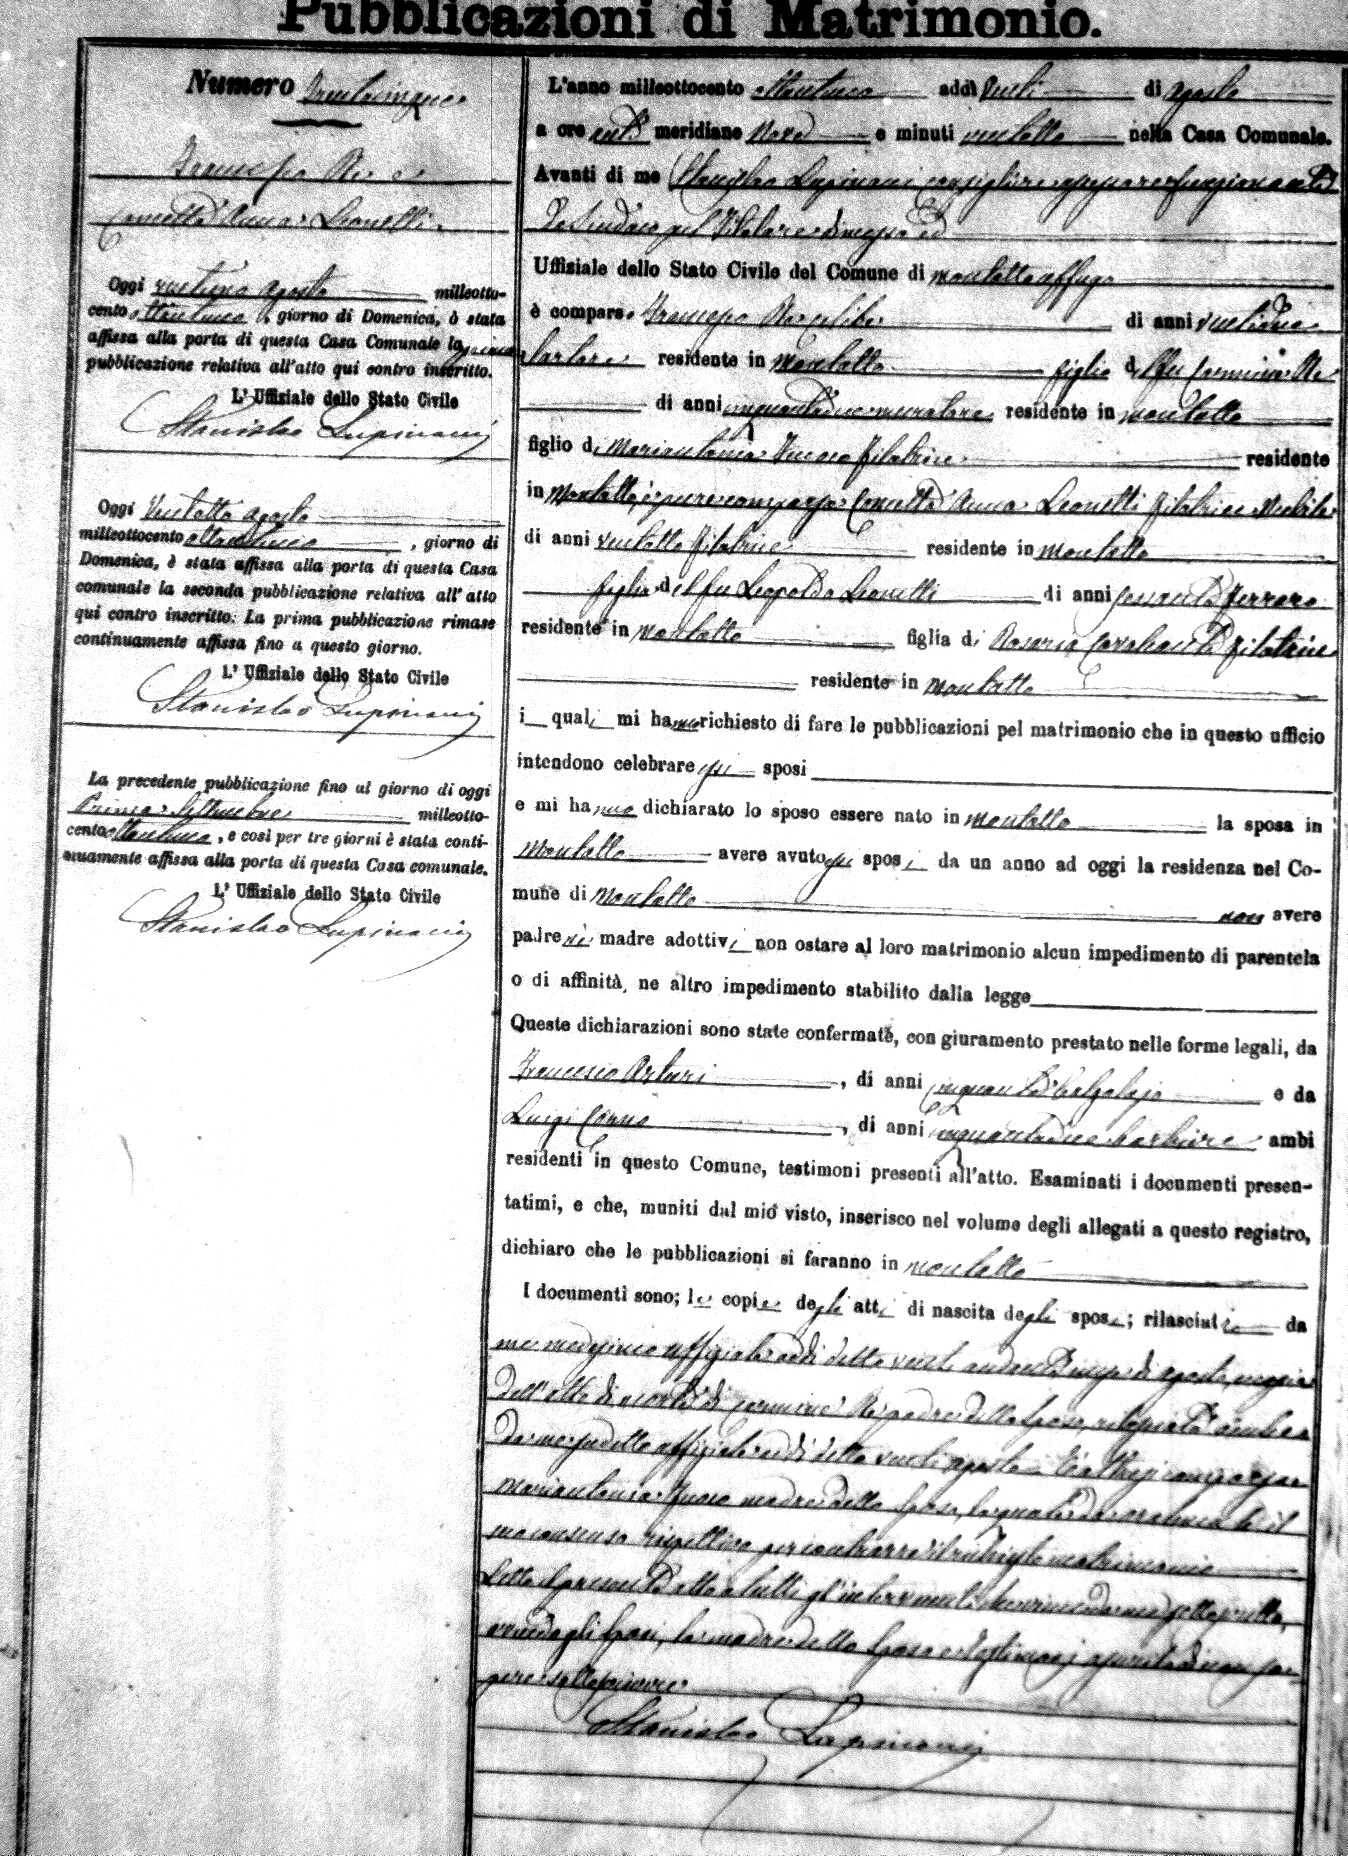 Pubblicazioni di Matrimonio.
Numero Trentacinque
Francesco Re e
Concetta Anna Leonetti
Oggi ventuno agosto milleotto-
cento ottantuno, giorno di Domenica, è stata
affissa alla porta di questa Casa Comunale la prima
pubblicazione relativa all'atto qui contro inscritto.
L'Uffiziale dello Stato Civile
Stanislao Lupinacci
Oggi Ventotto agosto
milleottocento ottantuno, giorno di
Domenica, è stata affissa alla porta di questa Casa
comunale la seconda pubblicazione relativa all'atto
qui contro inscritto: La prima pubblicazione rimase
continuamente affissa fino a questo giorno.
L'Uffiziale dello Stato Civile
Stanislao Lupinacci
La precedente pubblicazione fino al giorno di oggi
Primo Settembre milleotto-
cento ottantuno, e così per tre giorni è stata conti-
nuamente affissa alla porta di questa Casa comunale.
L'Uffiziale dello Stato Civile
Stanislao Lupinacci
L'anno milleottocento ottantuno addì venti di agosto
a ore anti meridiane nove e minuti ventotto nella Casa Comunale.
Avanti di me Stanislao Lupinacci consigliere assessore funzionante
da Sindaco pel titolare dimesso ed
Uffiziale dello Stato Civile del Comune di Montalto Uffugo
è comparso Francesco Re celibe di anni ventidue
residente in Montalto figlio del fu Carmine Re
di anni cinquantadue muratore residente in Montalto
figlio di Mariantonia filatrice residente
in Montalto, è pure comparsa Concetta Anna Leonetti filatrice nubile
di anni ventotto filatrice residente in Montalto
figlia del fu Leopoldo Leonetti di anni sessanta ferraro
residente in Montalto figlia di Rosaria Cavalcanti filatrice
residente in Montalto
i quali mi hanno richiesto di fare le pubblicazioni pel matrimonio che in questo ufficio
intendono celebrare essi sposi
e mi hanno dichiarato lo sposo essere nato in Montalto la sposa in
Montalto avere avuto essi sposi da un anno ad oggi la residenza nel Co-
mune di Montalto non avere
padre nè madre adottivi non ostare al loro matrimonio alcun impedimento di parentela
o di affinità, ne altro impedimento stabilito dalla legge
Queste dichiarazioni sono state confermate, con giuramento prestato nelle forme legali, da
Francesco Arturi, di anni cinquanta Calzolajo e da
Luigi, di anni cinquantadue barbiere ambi
residenti in questo Comune, testimoni presenti all'atto. Esaminati i documenti presen-
tatimi, e che, muniti dal mio visto, inserisco nel volume degli allegati a questo registro,
dichiaro che le pubblicazioni si faranno in Montalto
I documenti sono; le copie degli atti di nascita degli sposi; rilasciate da
me medesimo uffiziale addì detto venti andante mese di agosto, copia
dell'atto di morte di Carmine Re padre dello sposo, rilasciata
da me suddetto uffiziale addì detto venti agosto. È altresì comparsa
Mariantonia madre dello sposo, la quale
consenso rispettivo per contrarre il matrimonio
Letto il presente atto a tutti gl'intervenuti
gli sposi, la madre dello sposo e testimoni asserito di non sa-
pere sottoscrivere
Stanislao Lupinacci